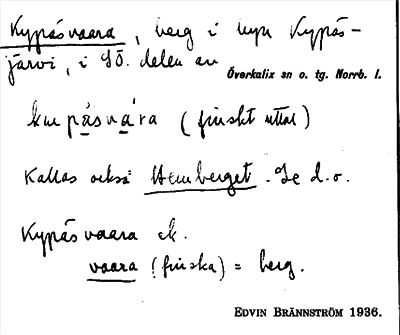 Kypäsvaara, berg i byn Kypäs-
järvi, i SÖ. delen av
Överkalix sn o. tg. Norrb. l.
(finskt uttal)
Kallas också Hemberget. Se d. o.
Kypäsvaara ek.
vaara (finska) = berg.
EDVIN BRÄNNSTRÖM 1936.